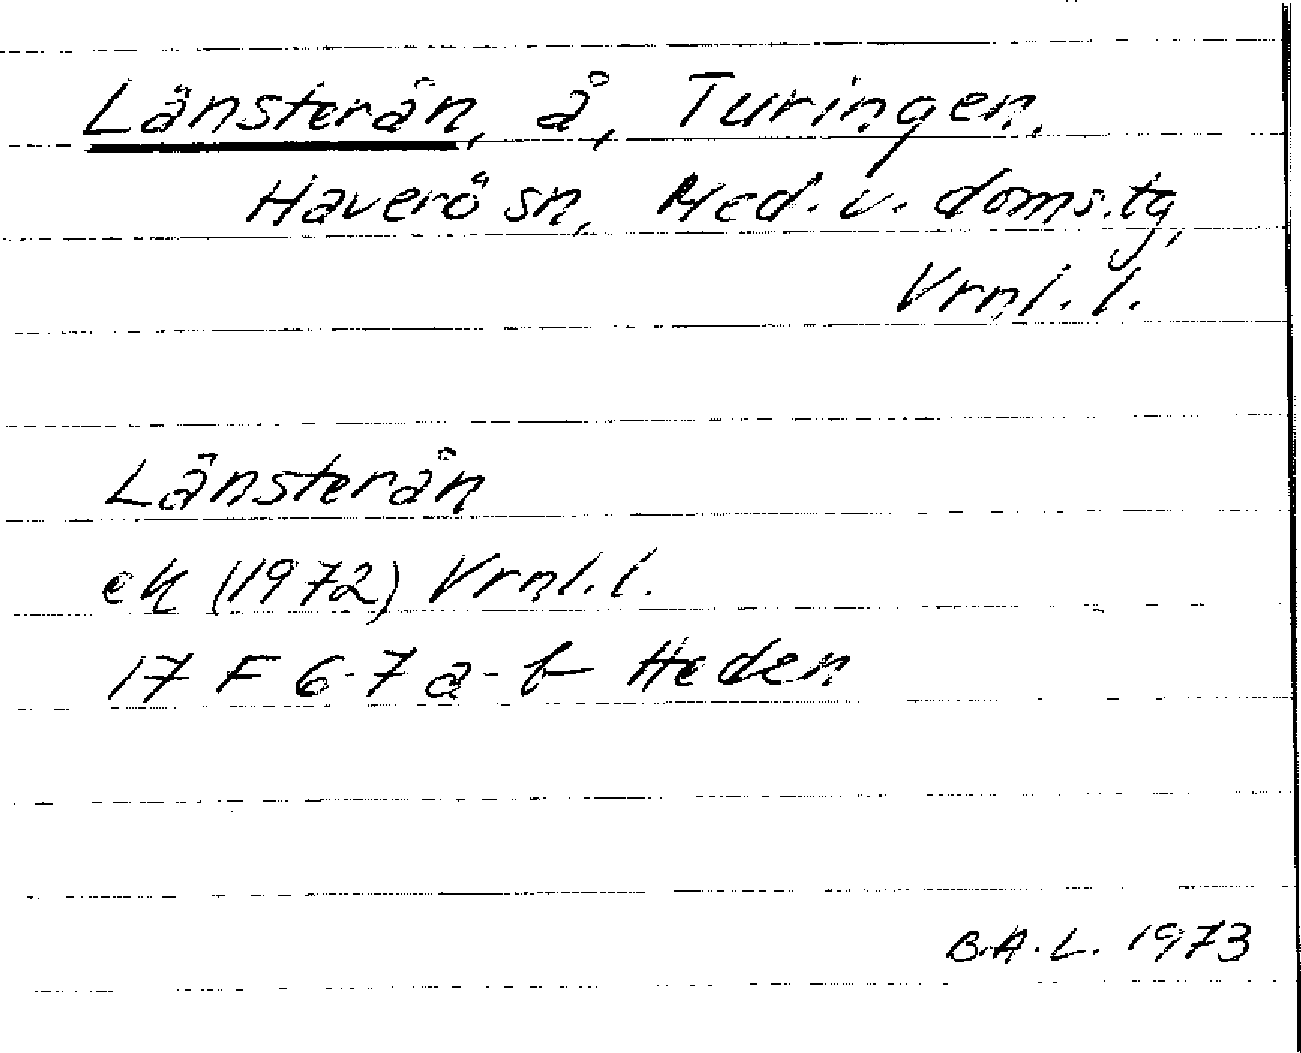 Länsterån, å, Turingen,
Haverö sn, Med. v. doms.tg,
Vrnl. l.
Länsterån
ek (1972) Vrnl. l.
17 F 6-7 a-b Heden
B.A.L. 1973